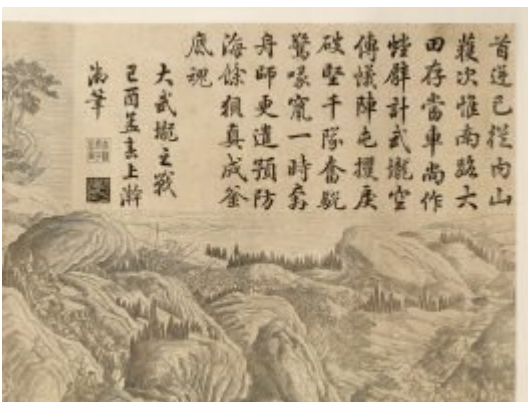 首逆已從內山
獲次惟南路大
田存當車尚作
螳臂計武壠空
傳陣屯戾
破堅千隊奮駾
驚喙竄一時奔
舟師更遣預防
海餘狽真成釜
底魂
大武壠之戰
己酉孟春上澣
御筆